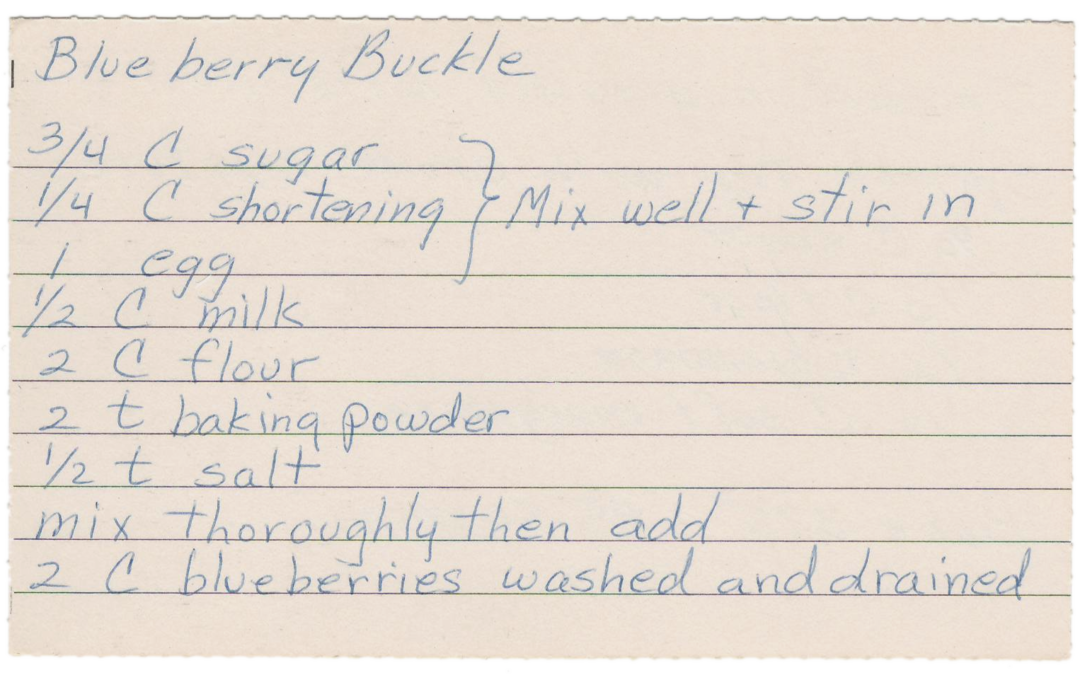 Blueberry Buckle
3/4 C sugar
1/4 C shortening } Mix well + stir in
1 egg
1/2 C milk
2 C flour
2 t baking powder
1/2 t salt
mix thoroughly then add
2 C blueberries washed and drained